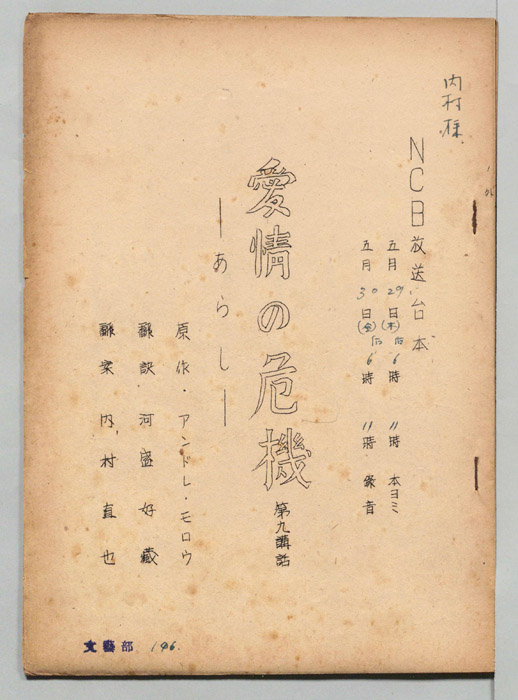 内村様
NCB放送台本
五月29日(木)后6時 〃時 本ヨミ
五月30日(金)后6時 〃時 録音
愛情の危機 第九講話
―あらし―
原作・アンドレ・モロウ
飜訳 河盛好蔵
飜案 内村直也
文藝部 196.